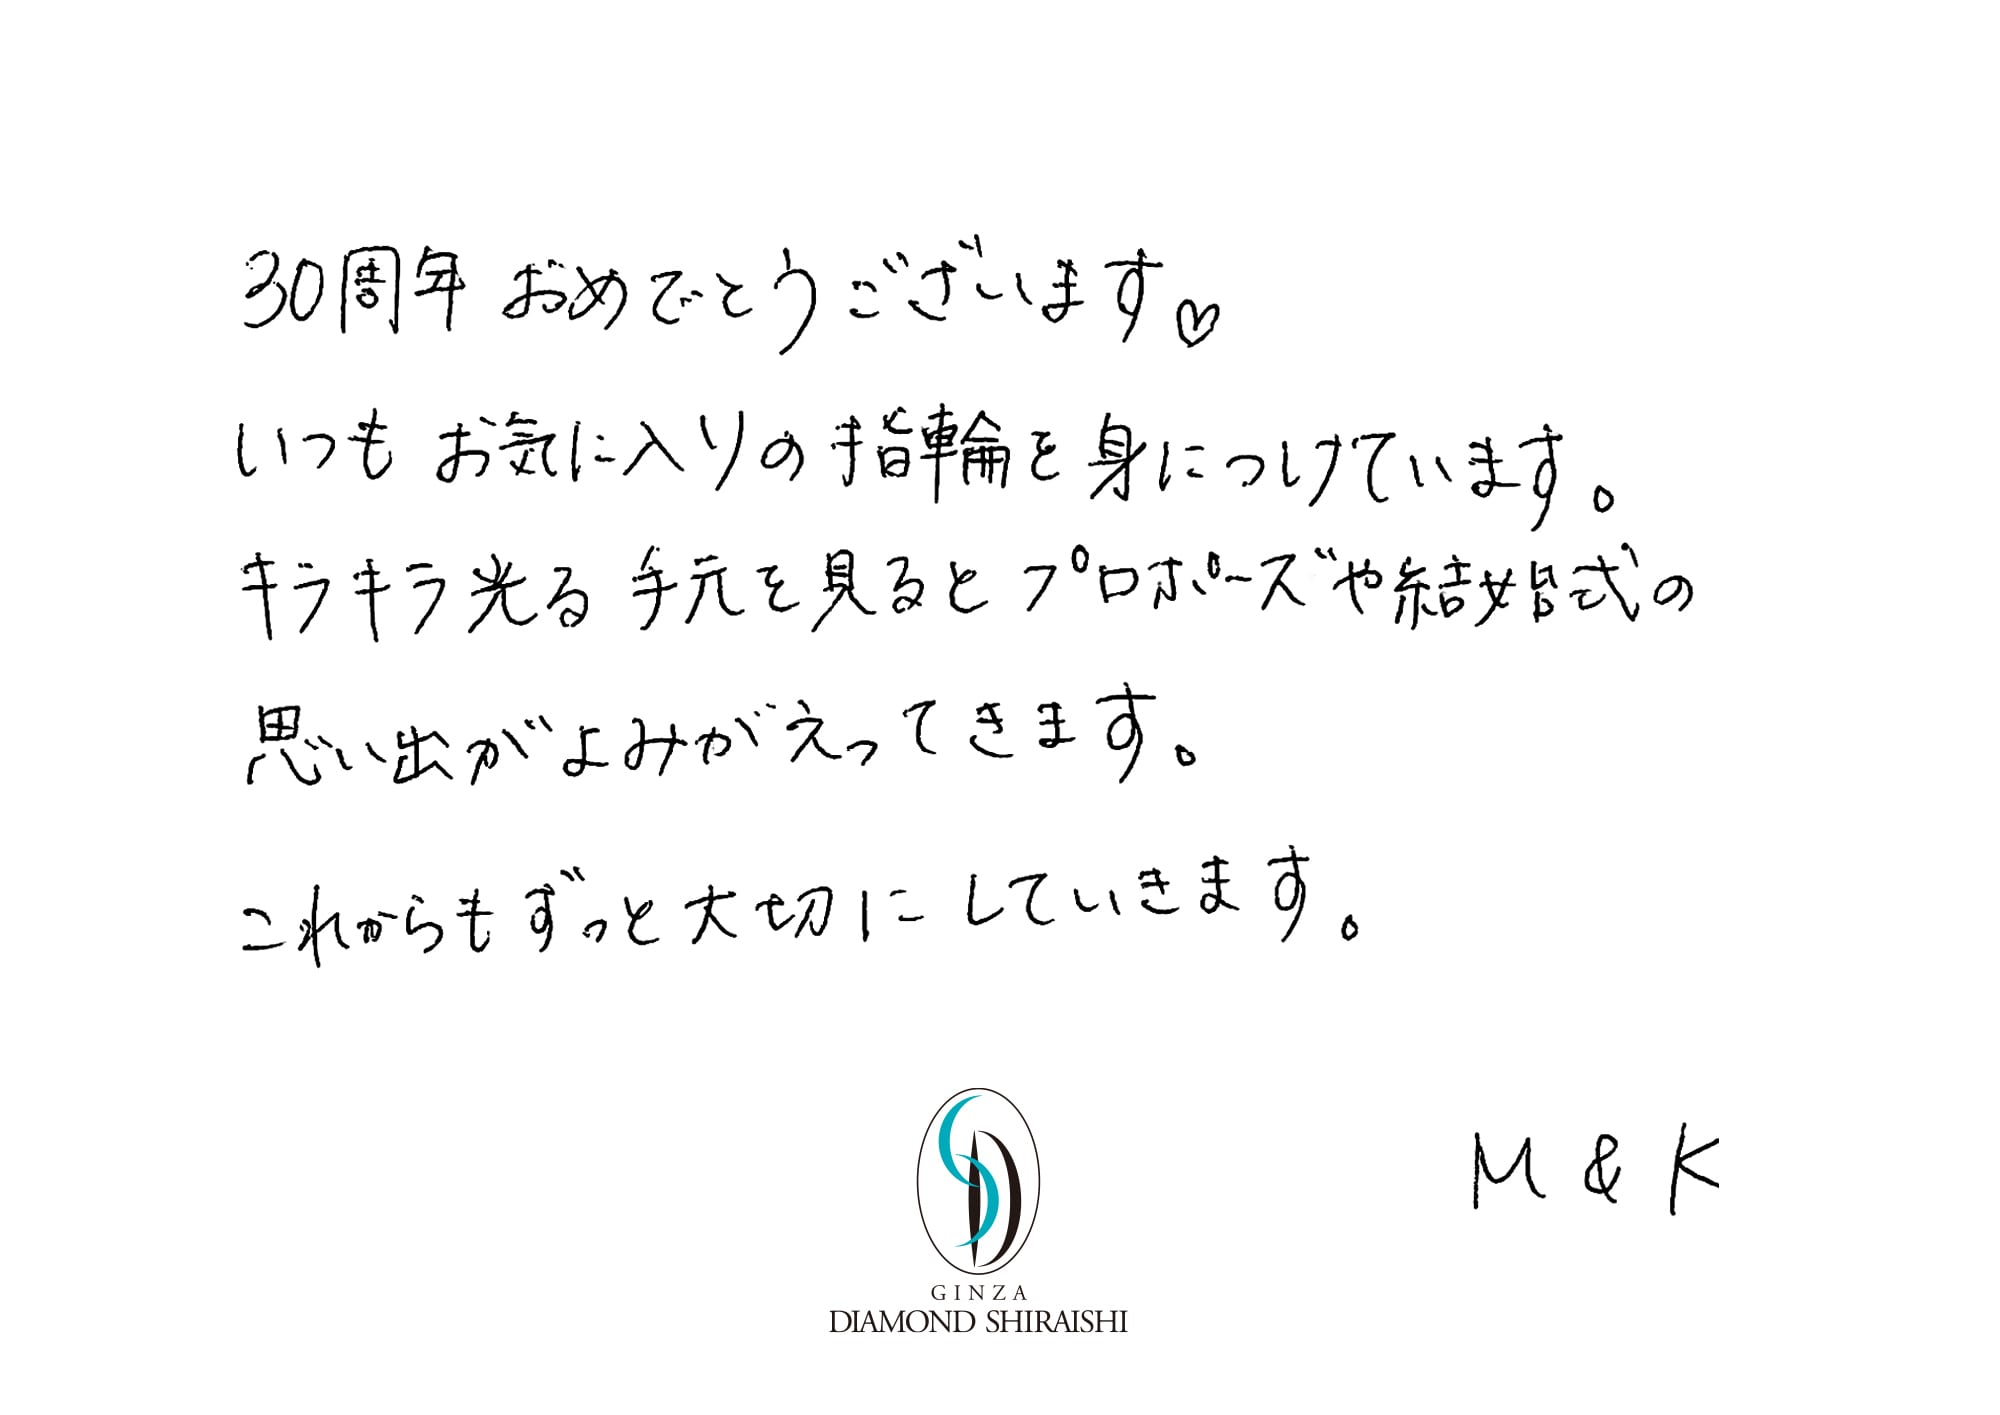 30周年 おめでとうございます♡
いつも お気に入りの 指輪を 身につけています。
キラキラ光る 手元を見ると プロポーズや結婚式の
思い出がよみがえってきます。
これからもずっと大切にしていきます。
M & K
GINZA
DIAMOND SHIRAISHI